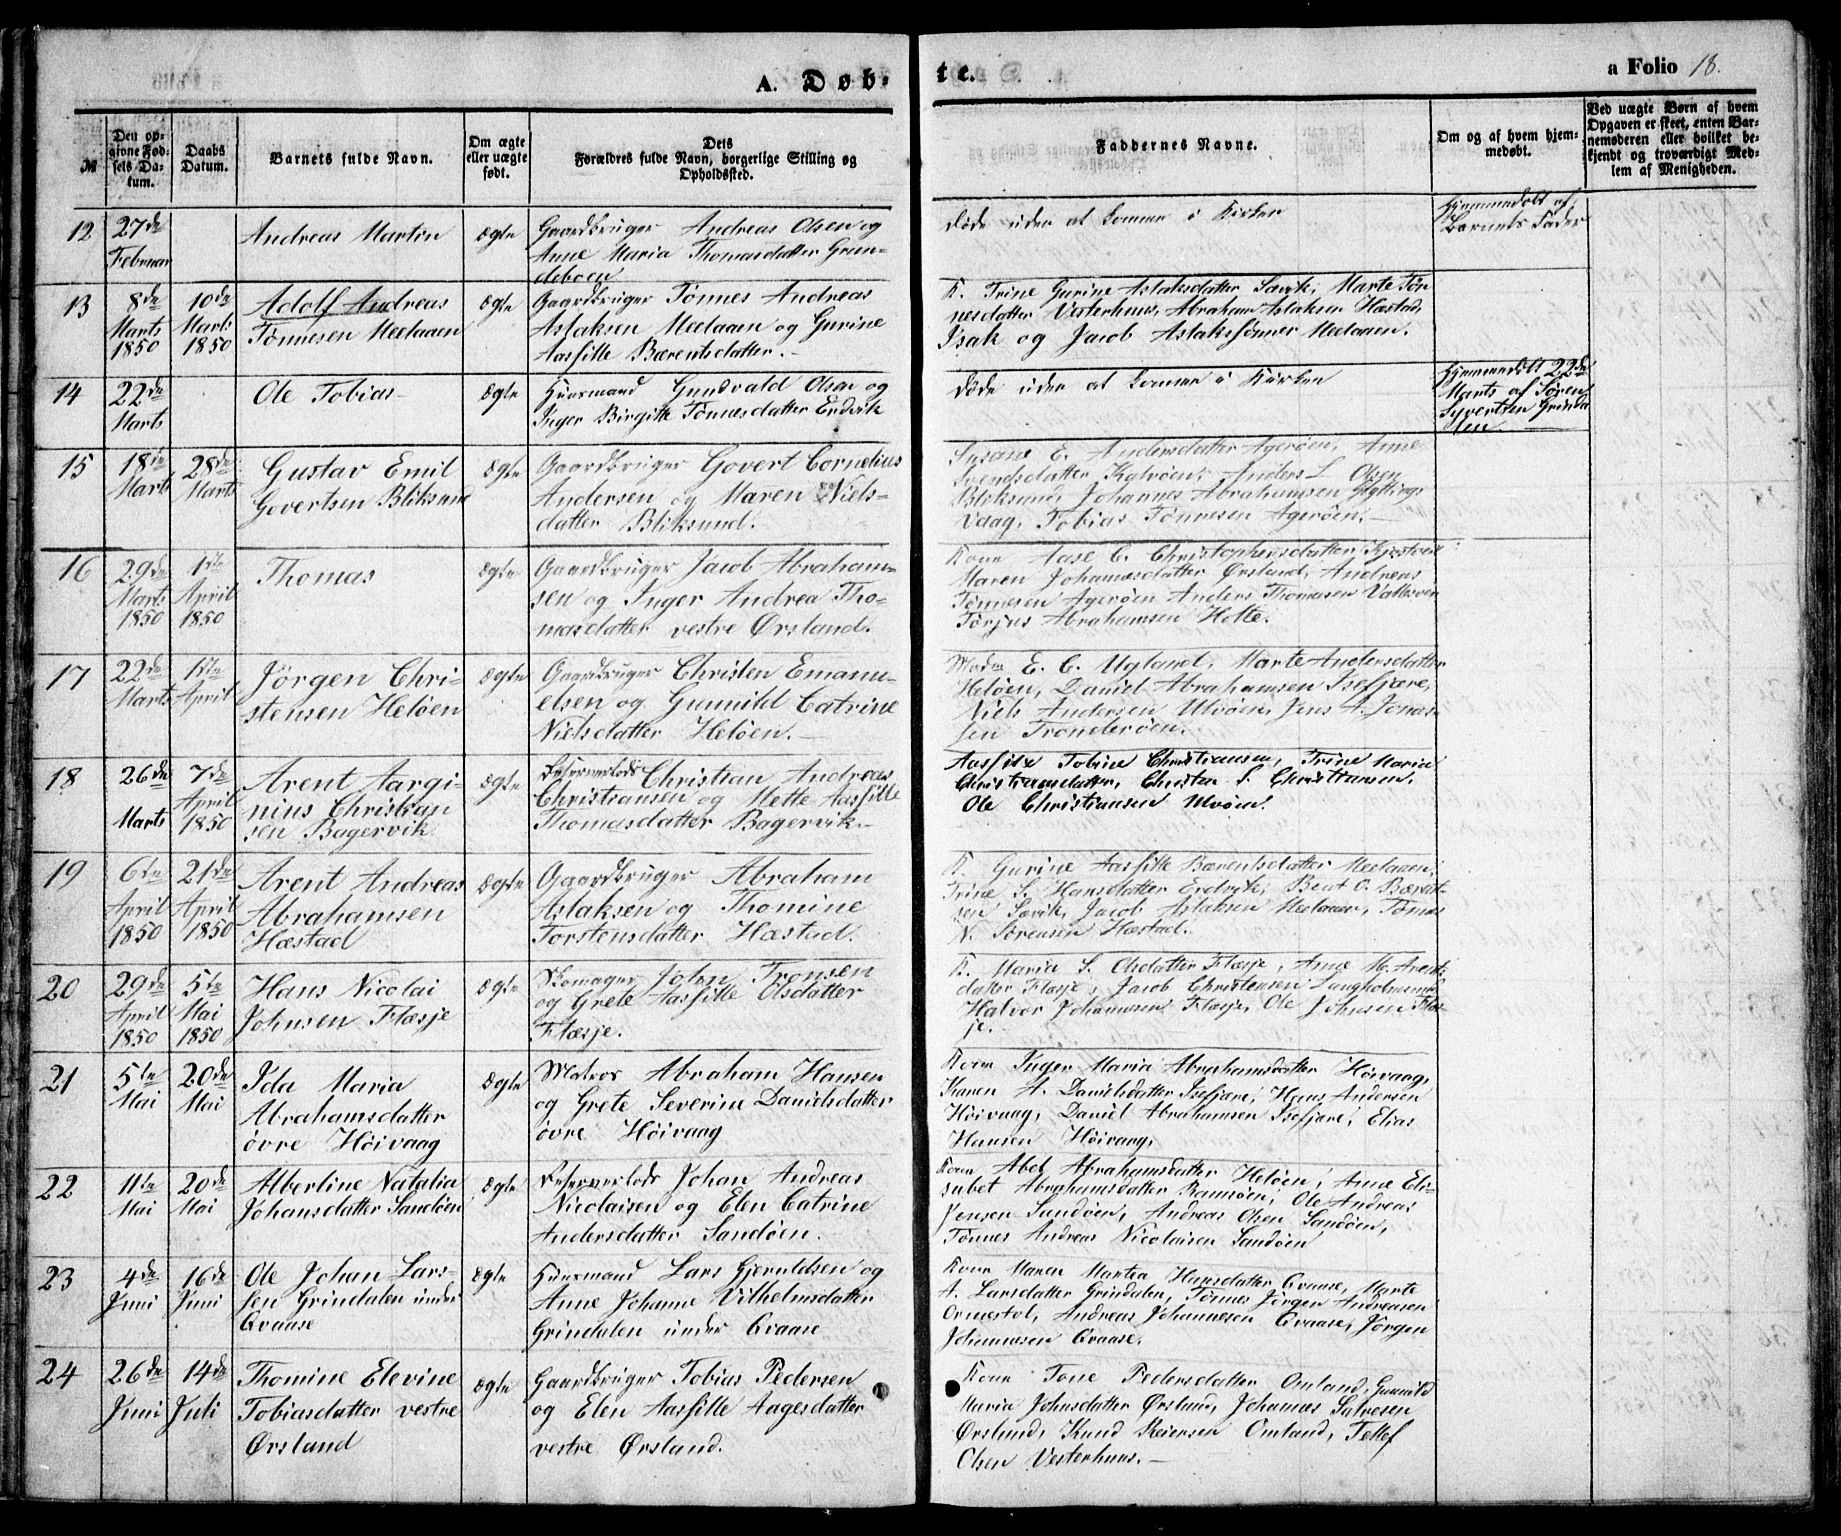 A. Døb- te.
a Folio 18.
№
Den op-
givne Fød-
sels Da-
tum.
Daabs
Datum.
Barnets fulde Navn.
Om ægte
eller uægte
født.
Dets
Forældres fulde Navn, borgerlige Stilling og
Opholdssted.
Faddernes Navne.
Om og af hvem hjem-
medøbt.
Ved uægte Børn af hvem
Opgaven er skeet, enten Bar-
nemoderen eller hvilket be-
kjendt og troværdigt Med-
lem af Menigheden.
12
27de
Februar
Andreas Martin
ægte
Gaardbruger Andreas Olsen og
Anne Maria Thomasdatter Grun-
deboen
døde uden at komme i Kirken
Hjemmedøbt af
Barnets Fader
13
8de
Marts
1850
10de
Marts
1850
Adolf Andreas
Tønnesen Meelaaen
ægte
Gaardbruger Tønnes Andreas
Aslaksen Meelaaen og Gurine
Aasfille Bærentsdatter.
K. Trine Gurine Aslaksdatter Savik, Marte Tøn
nesdatter Vesterhuus, Abraham Aslaksen Hæstad,
Isak og Jacob Aslakssønner Meelaaen.
14
22de
Marts
Ole Tobias
ægte
Huusmand Gundvald Olsen og
Inger Birgitte Tønnesdatter Erdvik
døde uden at komme i Kirken
Hjemmedøbt 22de
Marts af Søren
Syvertsen Grinda
len.
15
18de
Marts
28de
Marts
Gustav Emil
Govertsen Bliksund
ægte
Gaardbruger Govert Cornelius
Andersen og Maren Niels-
datter Bliksund.
Susane E. Andersdatter Agerøen, Anne
Svendsdatter Kalvøen, Anders L Olsen
Bliksund, Johannes Abrahamsen
Vaag, Tobias Tønnesen Agerøen.
16
29de
Marts
1850
1ste
April
1850
Thomas
ægte
Gaardbruger Jacob Abraham-
sen og Inger Andrea Tho-
masdatter vestre Ørsland.
Kone Aase C. Christophersdatter
Maren Johannesdatter Ørsland, Andreas
Tønnesen Agerøen Anders Thomasen
Tørjus Abrahamsen Holte.
17
22de
Marts
1ste
April
Jørgen Chri-
stensen Heløen
ægte
Gaardbruger Christen Emanu-
elsen og Gunnild Catrine
Nielsdatter Heløen.
E. C. Ugland, Marte Andersdatter
Heløen, Daniel Abrahamsen Isefjære,
Niels Andersen Ulvøen, Jens A. Jonas-
sen Tronderøen.
18
26de
Marts
7de
April
1850
Arent Aargi-
nius Christian
sen Bagervik
ægte
Reserverlods Christian Andreas
Christiansen og Mette Aasfille
Thomasdatter Bagervik
Aasfille Tobine Christiansen, Trine Maria
Christiansdatter, Christen S. Christiansen,
Ole Christiansen Ulvøen.
19
6te
April
1850
21de
April
1850
Arent Andreas
Abrahamsen
Hæstad
ægte
Gaardbruger Abraham
Aslaksen og Thomine
Torstensdatter Hæstad.
K. Gurine Aasfille Bærentsdatter Meelaaen,
Trine S. Hansdatter Erdvik, Bent O. Bærent
sen Savik, Jacob Aslaksen Meelaaen, Tønnes
N. Sørensen Hæstad.
20
29de
April
1850
5te
Mai
1850
Hans Nicolai
Johnsen Flæsje
ægte
Skomager John Tronsen
og Grete Aasfille Olsdatter
Flæsje.
K. Maria S. Olsdatter Flæsje, Anne M. Arents
datter Flæsje, Jacob Christensen
Halvor Johannesen Flæsje, Ole Johnsen Flæs
je.
21
5te
Mai
20de
Mai
Ida Maria
Abrahamsdatter
øvre Høivaag
ægte
Matros Abraham Hansen
og Grete Severine Danielsdatter
øvre Høivaag
Kone Inger Maria Abrahamsdatter Høivaag,
Karen A. Danielsdatter Isefjære, Hans Andersen
Høivaag, Daniel Abrahamsen Isefjære, Elias
Hansen Høivaag.
22
11te
Mai
20de
Mai
Albertine Natalia
Johansdatter Sandøen
ægte
Reserverlods Johan Andreas
Nicolaisen og Elen Catrine
Andersdatter Sandøen.
Kone Abel Abrahamsdatter Heløen, Anne Eli-
sabet Abrahamsdatter Ramsøen, Ole Andreas
Jensen Sandøen, Andreas Olsen Sandøen,
Tønnes Andreas Nicolaisen Sandøen
23
4de
Juni
16de
Juni
Ole Johan Lars-
sen Grindalen under
Qvaase
ægte
Huusmand Lars Gjeruldsen og
Anne Johanne Vilhelmsdatter
Grindalen under Qvaase
Kone Maren Martea Hansdatter Qvaase, Marte
A. Larsdatter Grindalen, Tønnes Jørgen Andreasen
Ormestol, Andreas Johannesen Qvaase, Jørgen
Johannesen Qvaase.
24
26de
Juni
14de
Juli
Thomine Elevine
Tobiasdatter vestre
Ørsland
ægte
Gaardbruger Tobias Pedersen
og Elen Aasfille Aagesdatter
vestre Ørsland.
Kone Tone Pedersdatter Omland, Gunnild
Maria Johnsdatter Ørsland, Johannes Salvesen
Ørsland, Knud Reiersen Omland, Tellef
Olsen Vesterhuus.